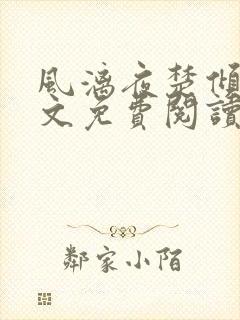 風漓夜楚傾
文免費閱讀
鄰家小陌